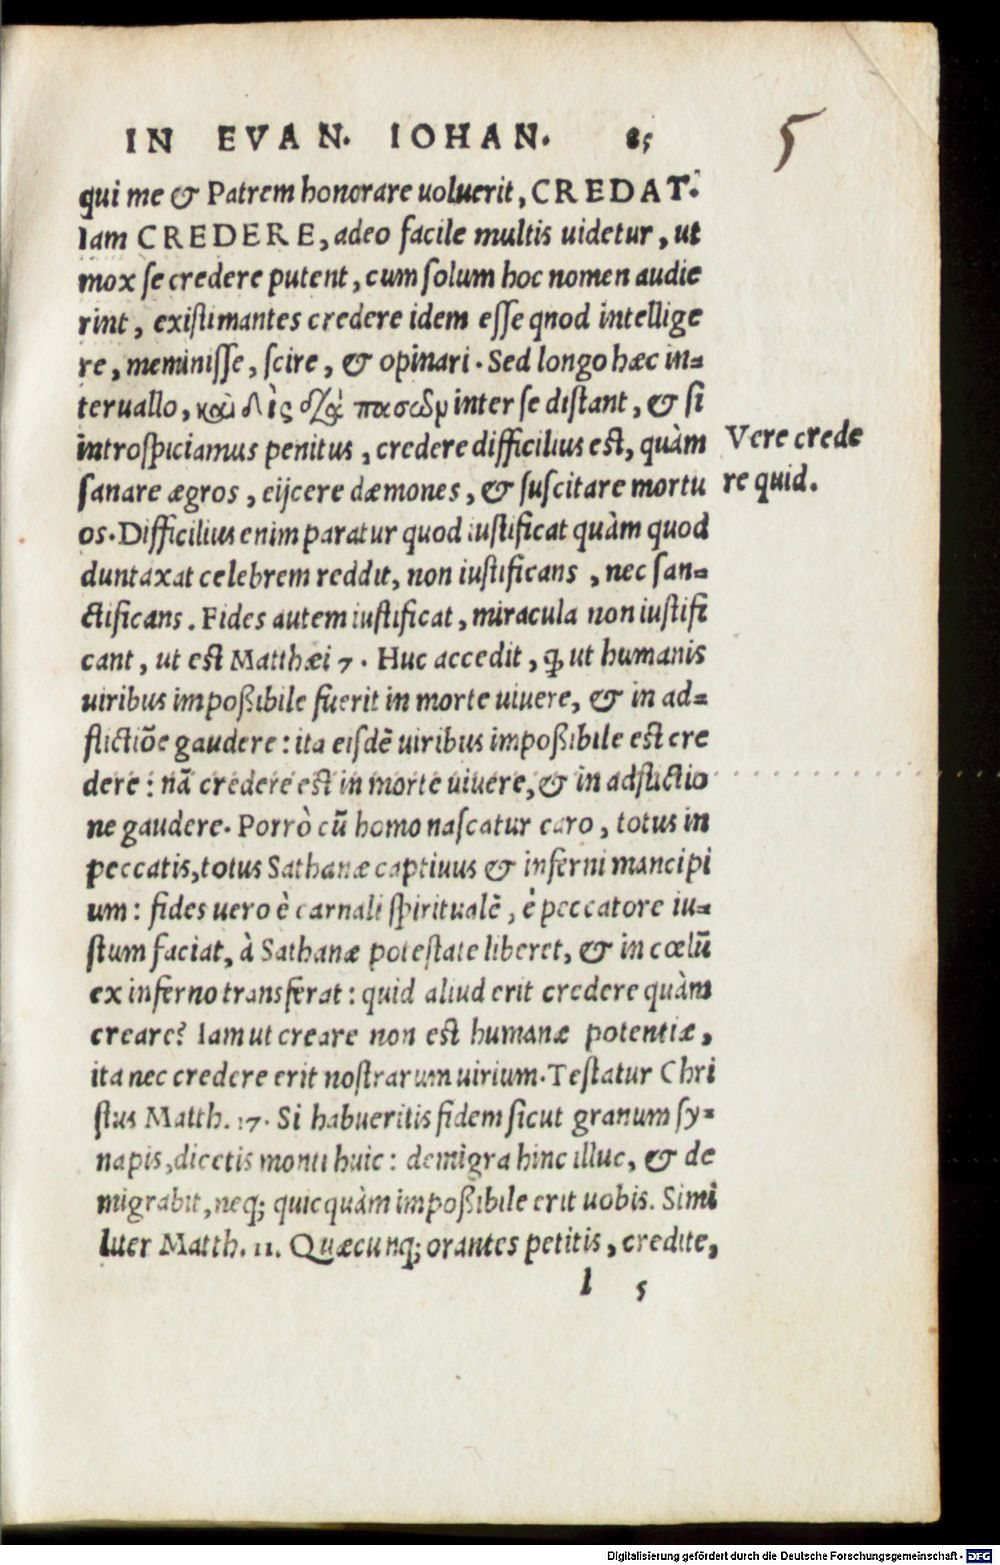 IN EVAN. IOHAN. 85
5
qui me & Patrem honorare uoluerit, CREDAT.
Iam CREDERE, adeo facile multis uidetur, ut
mox se credere putent, cum solum hoc nomen audie
rint, existimantes credere idem esse qnod intellige
re, meminisse, scire, & opinari. Sed longo hæc in=
teruallo, καὶ δὶς διὰ πασῶν inter se distant, & si
introspiciamus penitus, credere difficilius est, quàm
sanare ægros, eijcere dæmones, & suscitare mortu
os. Difficilius enim paratur quod iustificat quàm quod
duntaxat celebrem reddit, non iustificans, nec san=
ctificans. Fides autem iustificat, miracula non iustifi
cant, ut est Matthæi 7. Huc accedit, ꝙ ut humanis
uiribus impoßibile fuerit in morte uiuere, & in ad=
flictiōe gaudere: ita eisdē uiribus impoßibile est cre
dere: nā credere est in morte uiuere, & in adflictio
ne gaudere. Porrò cū homo nascatur caro, totus in
peccatis, totus Sathanæ captiuus & inferni mancipi
um: fides uero è carnali spiritualē, è peccatore iu=
stum faciat, à Sathanæ potestate liberet, & in cœlū
ex inferno transferat: quid aliud erit credere quàm
creare? Iam ut creare non est humanæ potentiæ,
ita nec credere erit nostrarum uirium. Testatur Chri
stus Matth. 17. Si habueritis fidem sicut granum sy=
napis, dicetis monti huic: demigra hinc illuc, & de
migrabit, neq; quicquàm impoßibile erit uobis. Simi
liter Matth. 11. Quæcunq; orantes petitis, credite,
l 5
Vere crede
re quid.
Digitalisierung gefördert durch die Deutsche Forschungsgemeinschaft - DFG